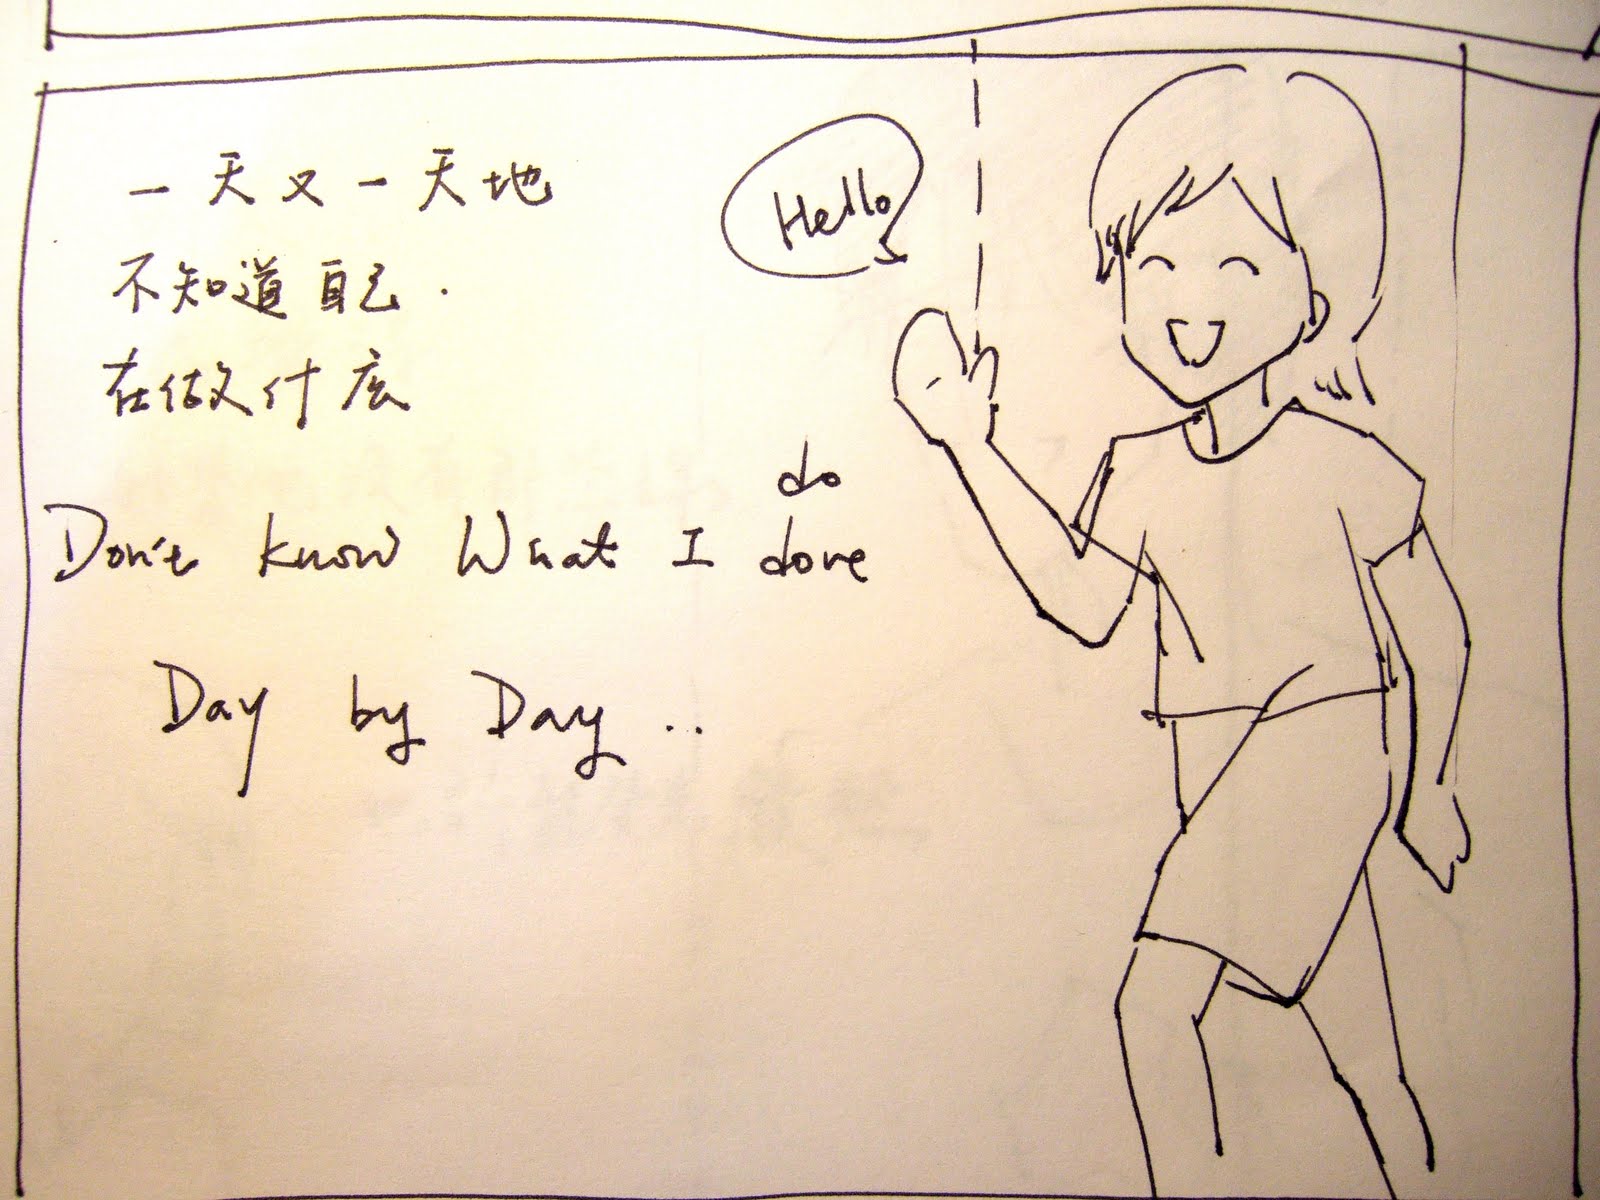 一天又一天地
不知道自己.
在做什么
Hello
do
Don't know What I done
Day by Day ..